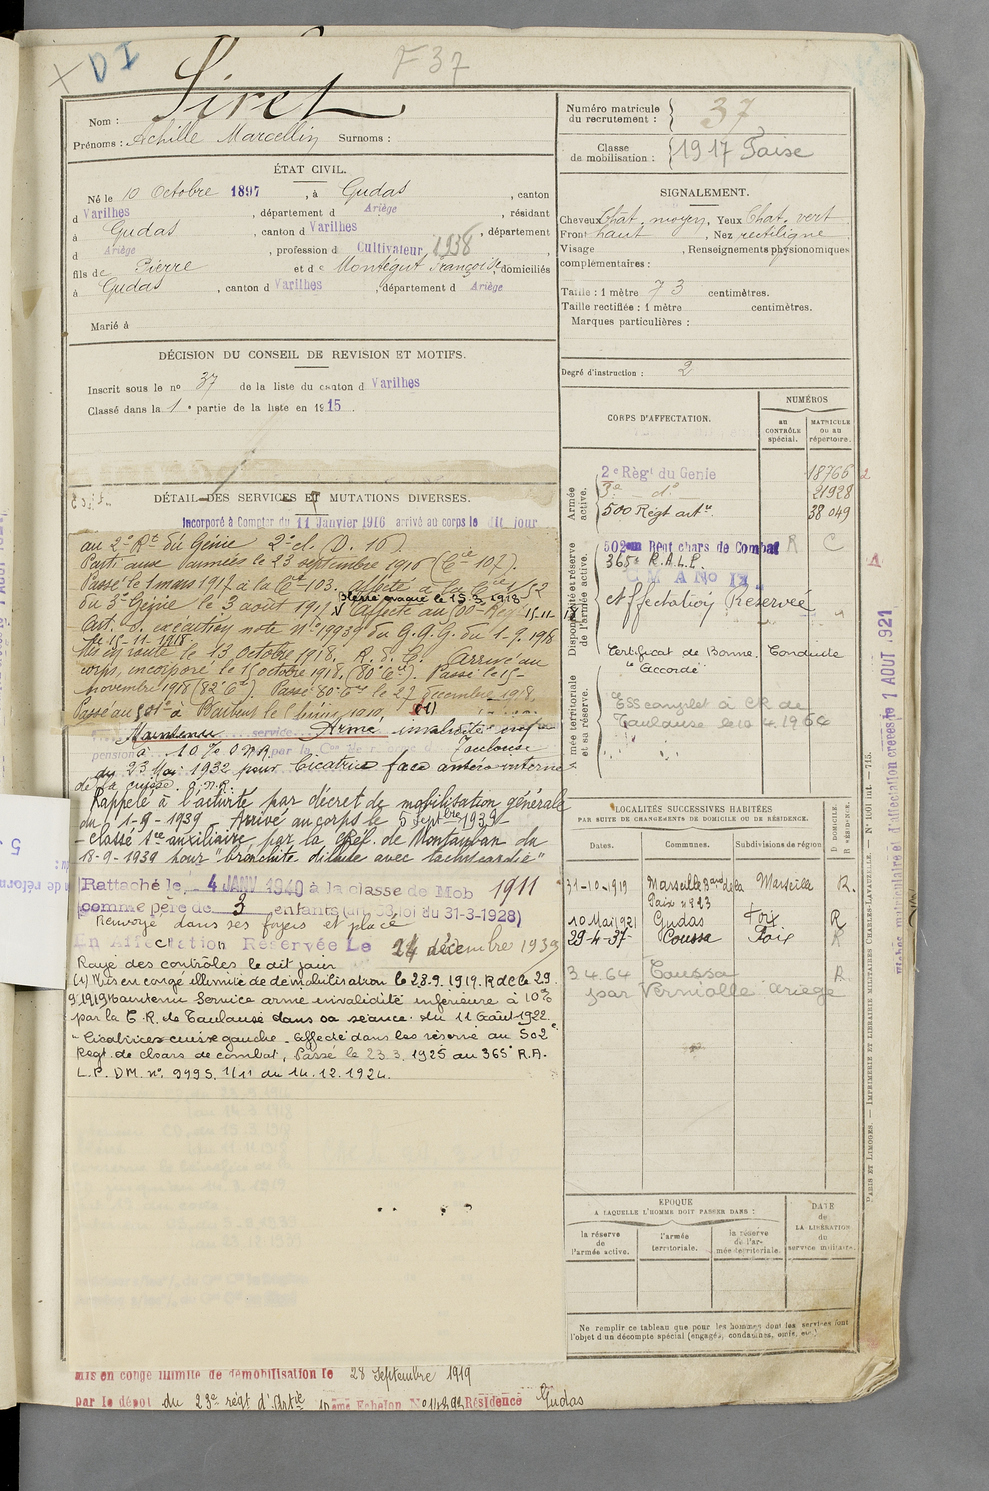 X DI
F 37
Nom : Siret
Prénoms : Achille Marcellin Surnoms :
ÉTAT CIVIL.
Né le 10 Octobre 1897, à Gudas, canton
d Varilhes, département d Ariège, résidant
à Gudas, canton d Varilhes, département
d Ariège, profession d Cultivateur 1938,
fils de Pierre et de Montégut Françoise, domiciliés
à Gudas, canton d Varilhes, département d Ariège
Marié à
DÉCISION DU CONSEIL DE REVISION ET MOTIFS.
Inscrit sous le no 37 de la liste du canton d Varilhes
Classé dans la 1e partie de la liste en 1915.
DÉTAIL DES SERVICES ET MUTATIONS DIVERSES.
Incorporé à Compter du 11 Janvier 1916 arrivé au corps le dit jour
au 2e Rt du Génie 2e cl. (D. 16).
Parti aux Armées le 23 septembre 1916 (Cie 107).
Passé le 1 mars 1917 à la Cie 103. Affecté à la Cie 152
du 3e Génie le 3 août 1917
Blessé évacué le 15.3.1918
Affecté au 500 Reg 15-11-18
Art. S. exécution note No 19939 du G.Q.G. du 1-9-1918
le 15-11-1918
Mis en route le 13 Octobre 1918. R. d. C. Arrivé au
corps, incorporé le 15 octobre 1918. (80e Cie). Passé le 15-
novembre 1918 (82e Cie). Passé 80e Cie le 27 décembre 1918.
Passé au 501e à le 1 juin 1919, (1)
Maintenu service Armé invalidité infre
pension à 10 % O.N.R. par la Con de Toulouse
du 23 Mai 1932 pour Cicatrice face antéro-interne
de la cuisse. g. n.R.
Rappelé à l'activité par décret de mobilisation générale
du 1-9-1939 - Arrivé au corps le 5 Septbre 1939 -
- classé sce auxiliaire par la C Réf. de Montauban du
18-9-1939 pour "bronchite diffuse avec tachycardie"
Rattaché le, 4 JANV 1940 à la classe de Mob 1911
comme père de 3 enfants (art. 58 loi du 31-3-1928)
Renvoyé dans ses foyers et placé
En Affectation Réservée Le 24 décembre 1939
Rayé des contrôles le dit jour
(1) Mis en congé illimité de démobilisation le 28.9.1919. R de C le 29
9.1919. Maintenu Service armé invalidité inférieure à 10%
par la C.R. de Toulouse dans sa séance du 11 Août 1922.
"Cicatrices cuisse gauche - affecté dans les réserve au 502e
Regt. de chars de combat, Passé le 23.3.1925 au 365e R.A.
L.P. DM. no. 9995. 1/11 du 14.12.1924.
mis en congé illimité de démobilisation le 28 Septembre 1919
par le dépôt du 23e régt d'Artie 10ème Echelon No Résidence Gudas
Numéro matricule du recrutement : 37
Classe de mobilisation : 1917 Foix
SIGNALEMENT.
Cheveux Chat. moyen, Yeux Chat. vert
Front haut, Nez rectiligne
Visage , Renseignements physionomiques
complémentaires :
Taille : 1 mètre 73 centimètres.
Taille rectifiée : 1 mètre centimètres.
Marques particulières :
Degré d'instruction : 2
CORPS D'AFFECTATION.
NUMÉROS
au CONTRÔLE spécial.
MATRICULE ou au répertoire.
Armée active.
2e Régt du Génie 18766
3e - do - 21928
500 Régt artie 38 049
Disponibilité et réserve de l'armée active.
502me Régt chars de Combat R C
365e R.A.L.P.
C M A No 17
Affectation Réservée
Certificat de Bonne Conduite
"Accordé"
Armée territoriale et sa réserve.
Ess complet à CR de
Toulouse le 10.4.1964
LOCALITÉS SUCCESSIVES HABITÉES
PAR SUITE DE CHANGEMENTS DE DOMICILE OU DE RÉSIDENCE.
Dates. Communes. Subdivisions de région. D. DOMICILE. R. RÉSIDENCE.
31-10-1919 Marseille 3 de la Marseille R.
Paix no 23
10 Mai 1921 Gudas Foix R
29-4-37- Coussa Foix R
3 4.64 Coussa R.
par Verniolle Ariège
ÉPOQUE
A LAQUELLE L'HOMME DOIT PASSER DANS :
la réserve de l'armée active.
l'armée territoriale.
la réserve de l'armée territoriale.
DATE de LA LIBÉRATION du service militaire.
Ne remplir ce tableau que pour les hommes dont les services font
l'objet d'un décompte spécial (engagés, condamnés, omis, etc.)
PARIS ET LIMOGES. — IMPRIMERIE ET LIBRAIRIE MILITAIRES CHARLES-LAVAUZELLE. — No 1001 int. — 715.
Fiches matriculaire et d'affectation créées le 1 AOUT 1921